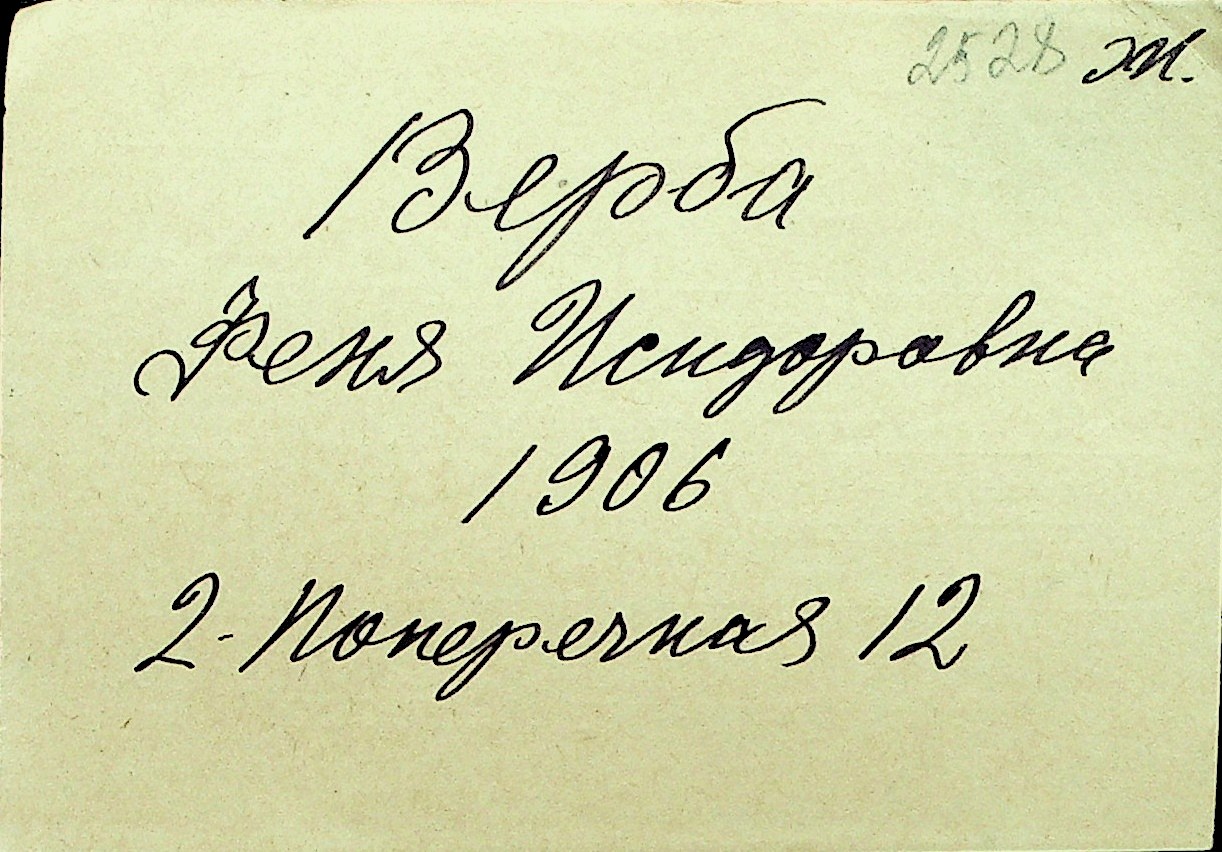 2528 Ж.
Верба
Феня Исидоровна
1906
2-Поперечная 12